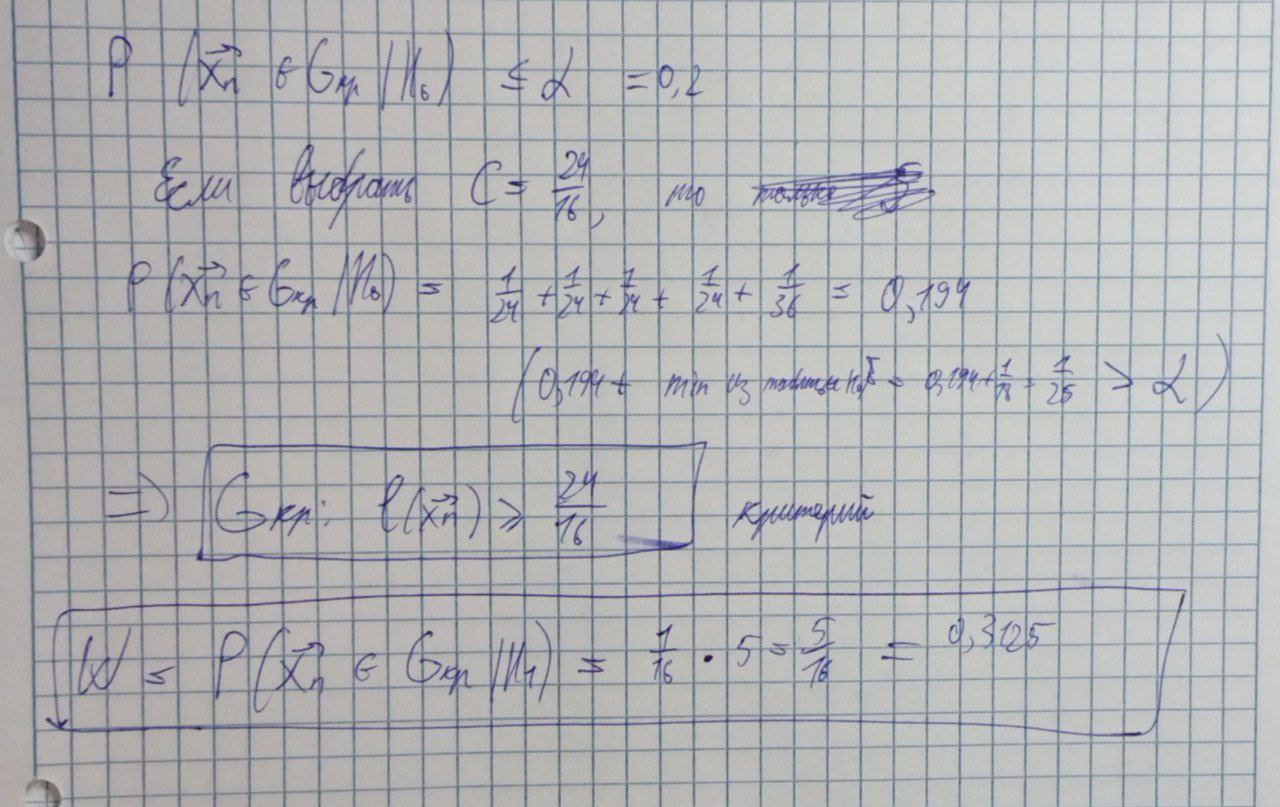 P (x⃗n ∈ Gкр / H₀) ≤ α = 0,2
Если выбрать C = 24/16, то
P (x⃗n ∈ Gкр / H₀) = 1/24 + 1/24 + 1/24 + 1/24 + 1/36 = 0,194
(0,194 + min из таблицы = 0,194 + 1/18 1/25 > α)
⇒ Gкр: l(x⃗n) ≥ 24/16 критерий
W = P (x⃗n ∈ Gкр / H₁) = 1/16 · 5 = 5/16 = 0,3125